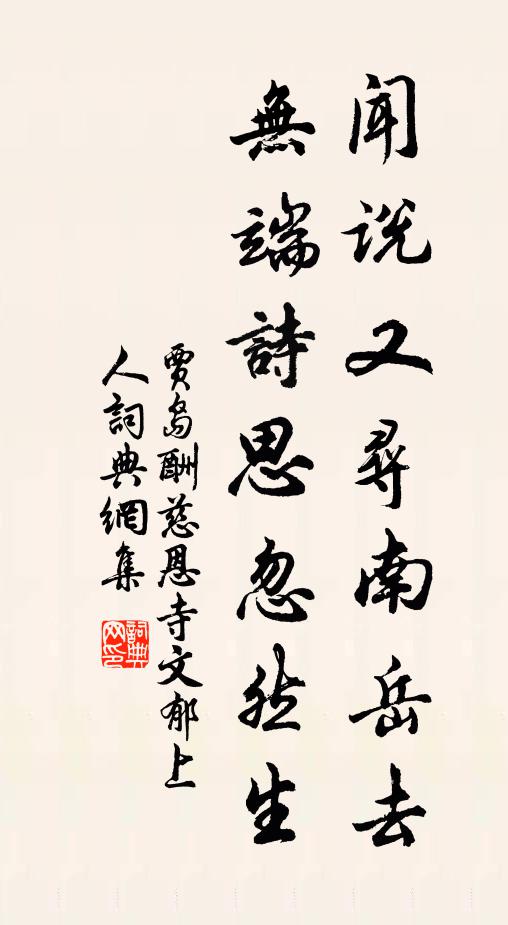 聞説又尋南岳去
無端詩思忽然生
賈島酬慈恩寺文郁上
人詞典網集
詞典
网印